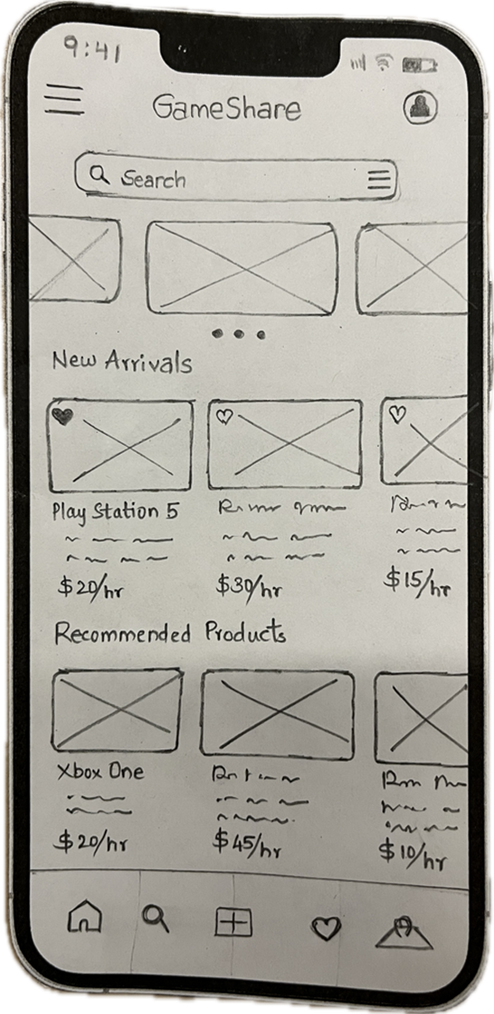 9:41
GameShare
Search
New Arrivals
Play Station 5
$20/hr $30/hr $15/hr
Recommended Products
Xbox One
$20/hr $45/hr $10/hr